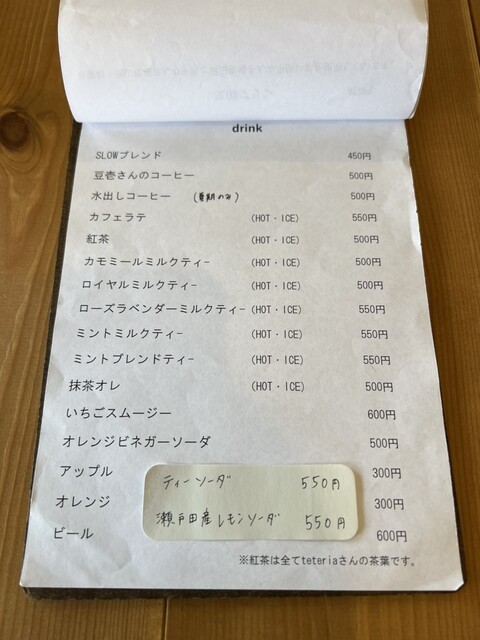 drink
SLOWブレンド 450円
豆壱さんのコーヒー 500円
水出しコーヒー (夏期のみ) 500円
カフェラテ (HOT・ICE) 550円
紅茶 (HOT・ICE) 500円
カモミールミルクティ- (HOT・ICE) 500円
ロイヤルミルクティ- (HOT・ICE) 500円
ローズラベンダーミルクティ- (HOT・ICE) 550円
ミントミルクティ- (HOT・ICE) 550円
ミントブレンドティ- (HOT・ICE) 550円
抹茶オレ (HOT・ICE) 500円
いちごスムージー 600円
オレンジビネガーソーダ 500円
アップル 300円
ティーソーダ 550円
オレンジ 300円
瀬戸田産レモンソーダ 550円
ビール 600円
※紅茶は全てteteriaさんの茶葉です。